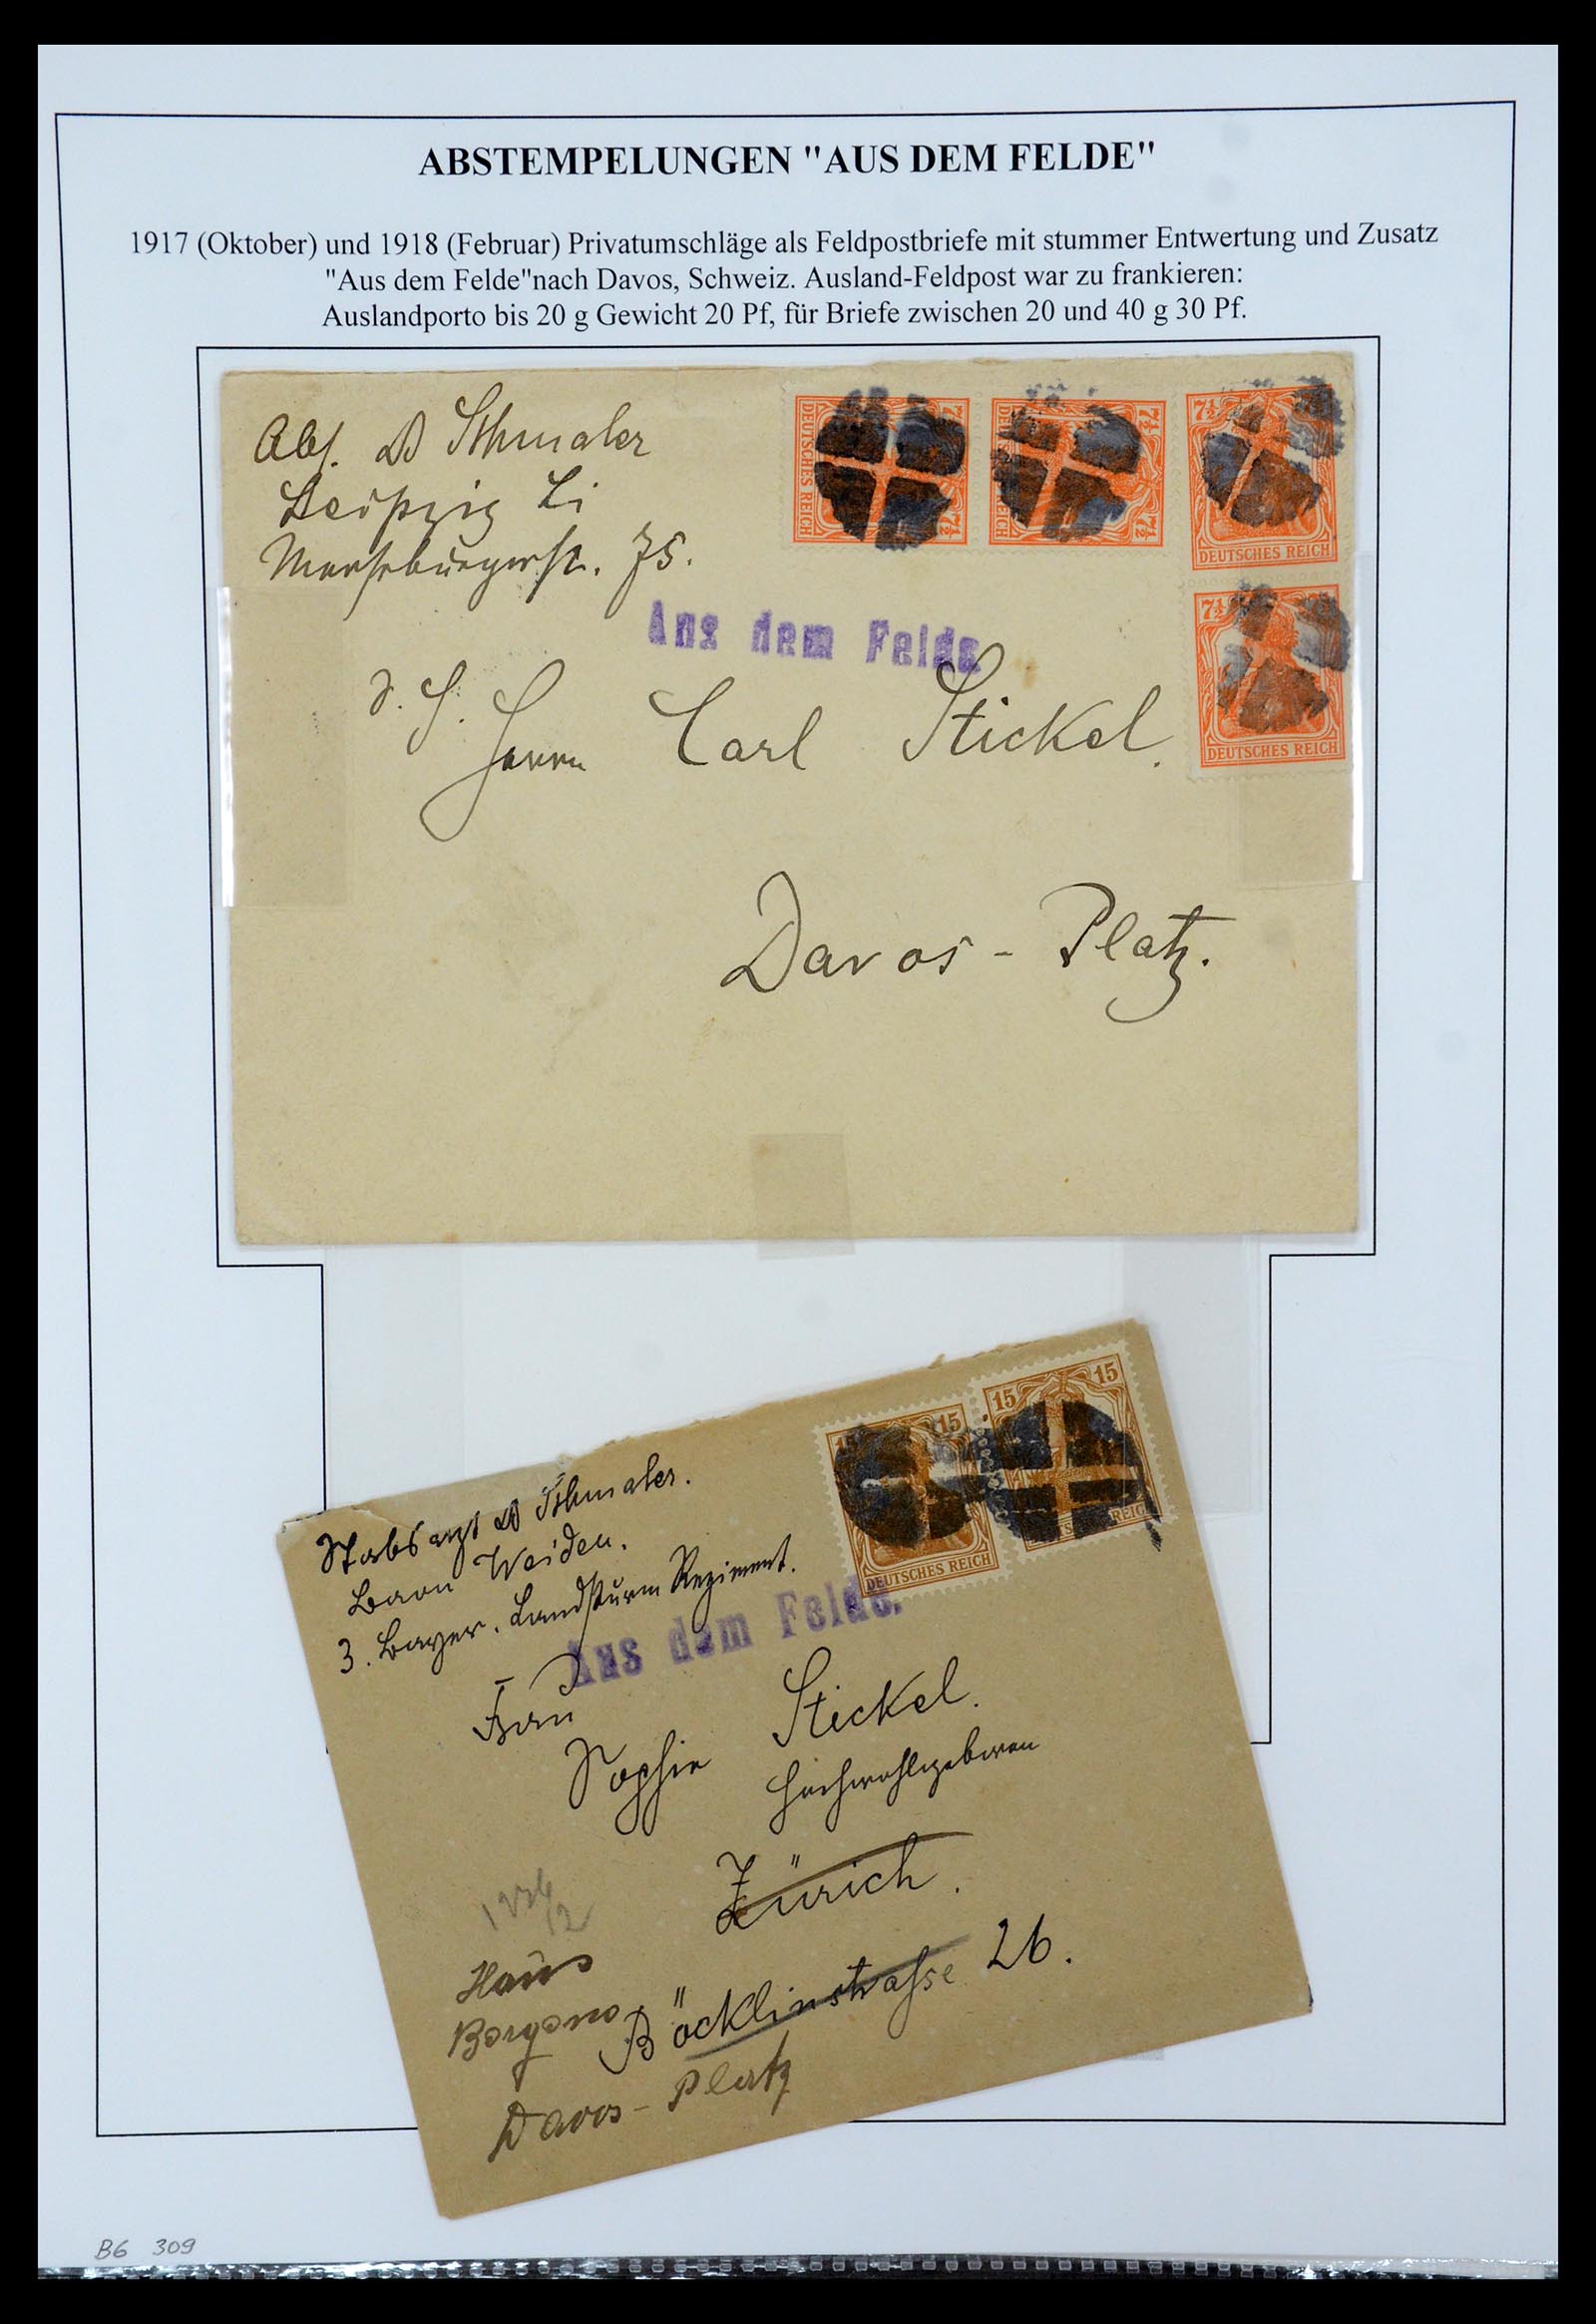 ABSTEMPELUNGEN "AUS DEM FELDE"
1917 (Oktober) und 1918 (Februar) Privatumschläge als Feldpostbriefe mit stummer Entwertung und Zusatz
"Aus dem Felde"nach Davos, Schweiz. Ausland-Feldpost war zu frankieren:
Auslandporto bis 20 g Gewicht 20 Pf, für Briefe zwischen 20 und 40 g 30 Pf.
Abs. Dr Schmaler
Leipzig Li
Merseburgerst. 75.
7½
DEUTSCHES REICH
7½
7½
DEUTSCHES REICH
7½
7½
DEUTSCHES REICH
7½
DEUTSCHES REICH
Aus dem Felde
Herrn Carl Stickel.
Davos - Platz.
15 15
DEUTSCHES REICH
15 15
REICH
Stabsarzt Dr Schmaler.
Baon Weiden.
3. Bayer. Landsturm Regiment.
Aus dem Felde.
Frau
Sophie Stickel.
Hochwohlgeboren
Zürich.
Böcklinstrasse 26.
Haus
Davos - Platz
B6 309